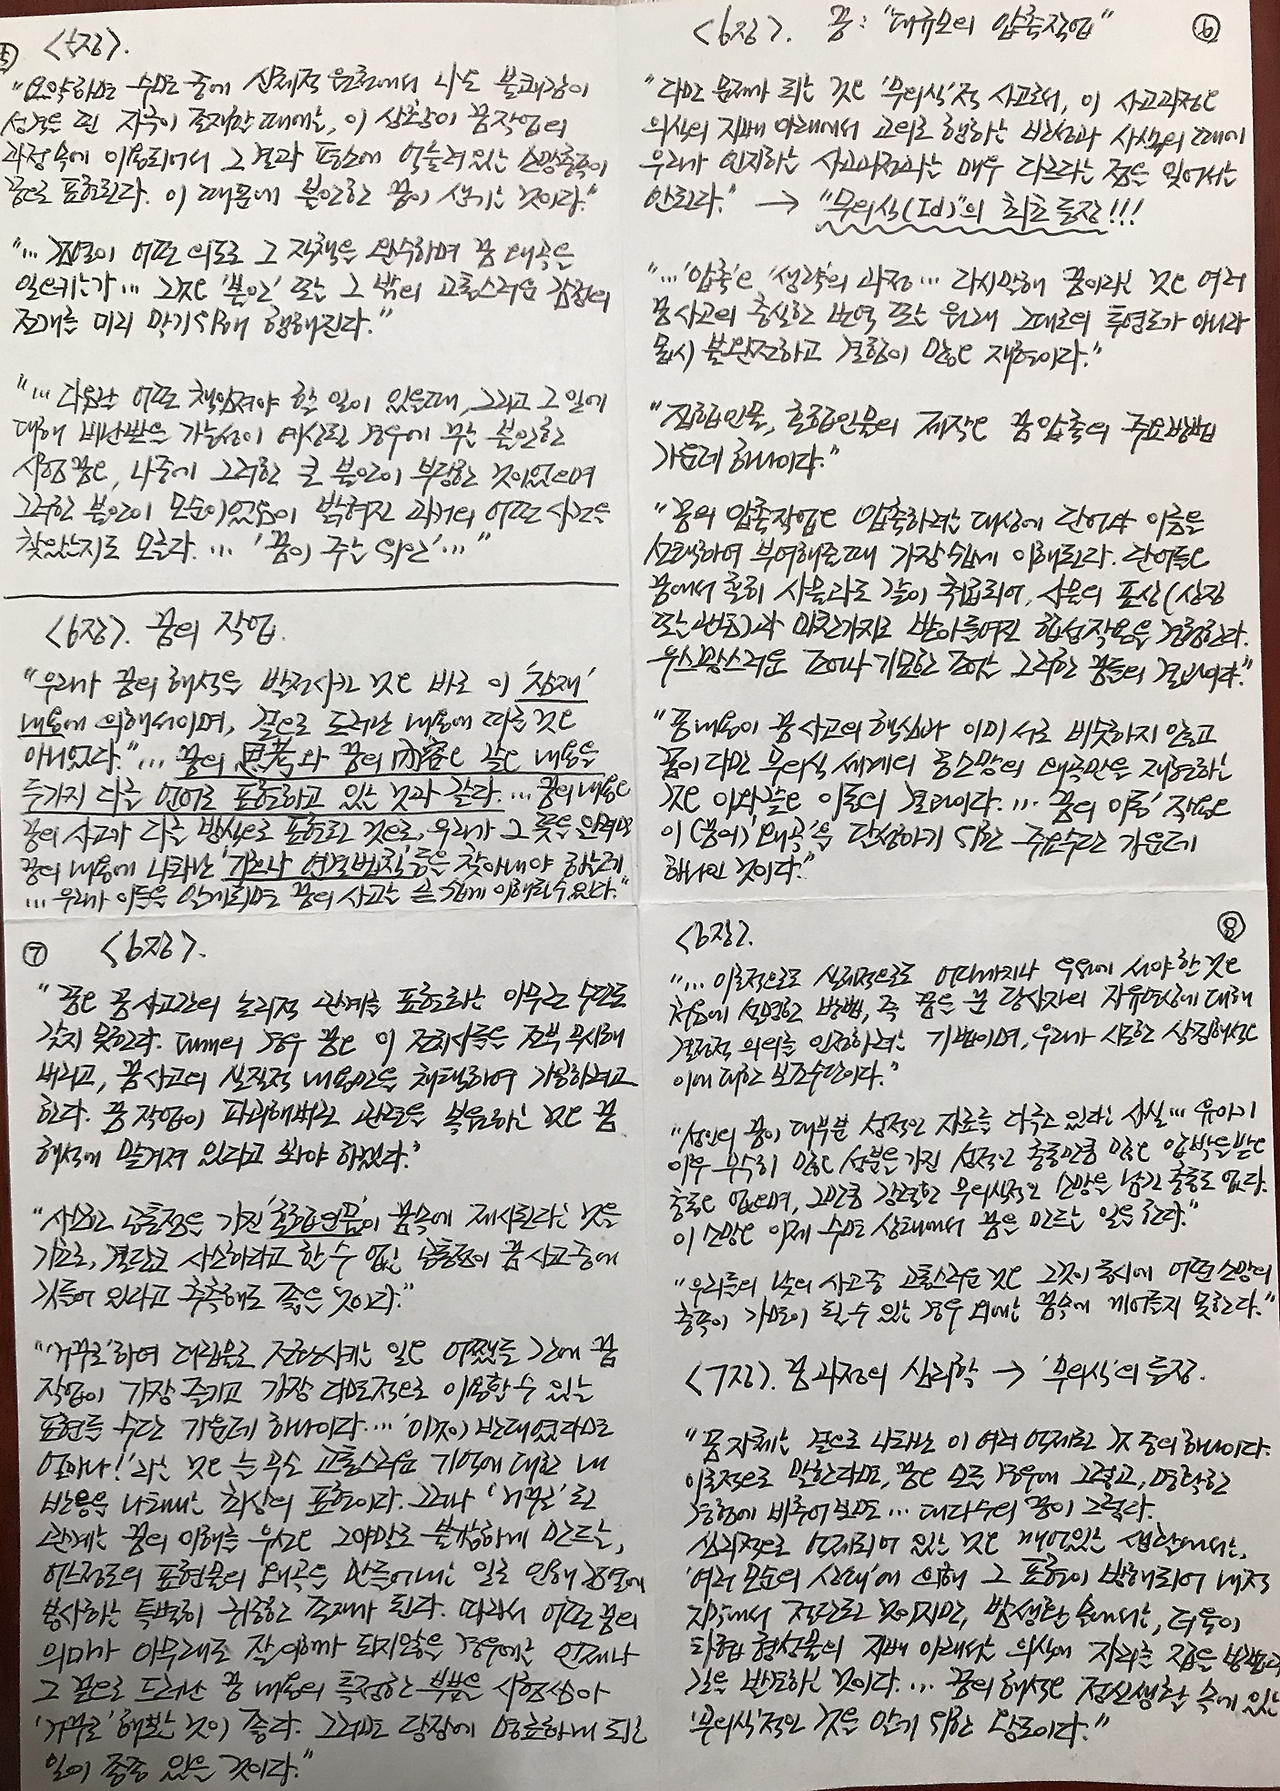 ⑤ <5장>.
"요약하면 수면 중에 신체적 원천에서 나온 불쾌감이
성격을 띤 자극이 존재할 때에는, 이 상황이 꿈작업의
과정 속에 이용되어서 그 결과 평소에 억눌려 있는 소망충족이
꿈으로 표현된다. 이 때문에 불안한 꿈이 생기는 것이다."
"… 검열이 어떤 의도로 그 직책을 완수하며 꿈 왜곡을
일으키는가… 그것은 '불안' 또는 그 밖의 고통스러운 감정의
전개를 미리 막기 위해 행해진다."
"… 다음날 어떤 책임져야 할 일이 있을 때, 그리고 그 일에
대해 비난받을 가능성이 예상될 경우에 꾸는 불안한
시험꿈은, 나중에 그러한 큰 불안이 부당한 것이었으며
그러한 불안이 모순이었음이 밝혀진 과거의 어떤 사건을
찾았는지도 모른다. … '꿈이 주는 위안'…"
<6장>. 꿈의 작업.
"우리가 꿈의 해석을 발전시킨 것은 바로 이 '잠재'
내용에 의해서이며, 겉으로 드러난 내용에 따른 것은
아니었다."… 꿈의 思考와 꿈의 內容은 같은 내용을
두가지 다른 언어로 표현하고 있는 것과 같다. … 꿈의 내용은
꿈의 사고가 다른 방식으로 표현된 것으로, 우리가 그 뜻을 알려면
꿈의 내용에 나타난 '기호나 연결법칙'들을 찾아내야 하는데
… 우리가 이들을 알게되면 꿈의 사고는 곧 쉽게 이해될 수 있다."
<6장>. 꿈: "대규모의 압축작업" ⑥
"다만 문제가 되는 것은 '무의식'적 사고로서, 이 사고과정은
의식의 지배 아래에서 고의로 행하는 반성과 사색의 때에
우리가 인지하는 사고과정과는 매우 다르다는 점을 잊어서는
안된다." → "무의식(Id)"의 최초 등장!!!
"…'압축'은 '생략'의 과정… 다시말해 꿈이라는 것은 여러
꿈사고의 충실한 번역 또는 원래 그대로의 투영도가 아니라
몹시 불완전하고 결함이 많은 재현이다."
"집합인물, 혼합인물의 제작은 꿈압축의 주요방법
가운데 하나이다."
"꿈의 압축작업은 압축하려는 대상에 단어와 이름을
선택하여 부여해줄 때 가장 쉽게 이해된다. 단어들은
꿈에서 흔히 사물과도 같이 취급되어, 사물의 표상(상징
또는)과 마찬가지로 받아들여진 합성작용을 경험한다.
우스꽝스러운 조어나 기묘한 조어는 그러한 꿈들의 결과이다."
"꿈내용이 꿈사고의 핵심과 이미 서로 비슷하지 않고
꿈이 다만 무의식 세계의 꿈소망의 왜곡만을 재현하는
것은 이와같은 이동의 결과이다. … '꿈의 이동' 작용은
이 (꿈의)'왜곡'을 달성하기 위한 주요수단 가운데
하나인 것이다."
⑦ <6장>.
"꿈은 꿈사고간의 논리적 관계를 표현하는 아무런 수단도
갖지 못한다. 대개의 경우 꿈은 이 전치사들을 전부 무시해
버리고, 꿈사고의 실질적 내용만을 채택하여 가공하려고
한다. 꿈 작업이 파괴해버린 관련을 복원하는 것은 꿈
해석에 맡겨져 있다고 봐야 하겠다."
"사소한 공통점을 가진 '혼합인물'이 꿈속에 제시된다는 것을
기초로, 결단코 사소하다고 할 수 없는 공통점이 꿈사고중에
깃들어 있다고 추측해도 좋을 것이다."
"'거꾸로'하여 대립물로 전환시키는 일은 어쨌든 간에 꿈
작업이 가장 즐기고 가장 다면적으로 이용할 수 있는
표현 수단 가운데 하나이다. … '이것이 반대였다면
얼마나!'라는 것은 늘 무슨 고통스러운 기억에 대한 내
반응을 나타내는 최상의 표현이다. 그러나 '거꾸로'된
관계는 꿈의 이해를 우선은 그야말로 불가하게 만드는,
어느정도의 표현물의 왜곡을 만들어내는 일로 인해 검열에
봉사하는 특별히 귀중한 존재가 된다. 따라서 어떤 꿈의
의미가 아무래도 잘 이해가 되지않을 경우에는 언제나
그 겉으로 드러난 꿈 내용의 특정한 부분을 시험삼아
'거꾸로' 해보는 것이 좋다. 그러면 당장에 명료하게 되는
일이 종종 있을 것이다."
<6장>. ⑧
"… 이론적으로도 실제적으로도 어디까지나 우위에 서야 한 것은
처음에 설명한 방법, 즉 꿈을 꾼 당사자의 자유연상에 대해
결정적 의의를 인정하려는 기법이며, 우리가 시도한 상징해석은
이에 대한 보조수단이다."
"성인의 꿈이 대부분 성적인 자료를 다루고 있다는 사실… 유아기
이후 무수히 많은 성분을 가진 성적인 충동만큼 많은 압박을 받은
충동은 없으며, 그만큼 강렬한 무의식적인 소망을 남긴 충동도 없다.
이 소망은 이제 수면 상태에서 꿈을 만드는 일을 한다."
"우리들의 낮의 사고 중 고통스러운 것은 그것이 동시에 어떤 소망의
충족이 가면이 될 수 있는 경우 외에는 꿈속에 끼어들지 못한다."
<7장>. 꿈 과정의 심리학 → '무의식'의 등장.
"꿈 자체는 겉으로 나타난 이 여러 억제된 것 중의 하나이다.
이론적으로 말한다면, 꿈은 모든 경우에 그렇고, 명확한
경험에 비추어보면… 대다수의 꿈이 그렇다.
심리적으로 억제되어 있는 것은 깨어있는 생활에서는,
'여러 모순의 상쇄'에 의해 그 표현이 방해되어 내적
지각에서 절단된 것이지만, 밤생활 속에서는, 더욱이
타협 형성물의 지배 아래서는 의식에 자리를 잡을 방법과
길을 발견하는 것이다. … 꿈의 해석은 정신생활 속에 있는
'무의식'적인 것을 알기 위한 왕도이다."